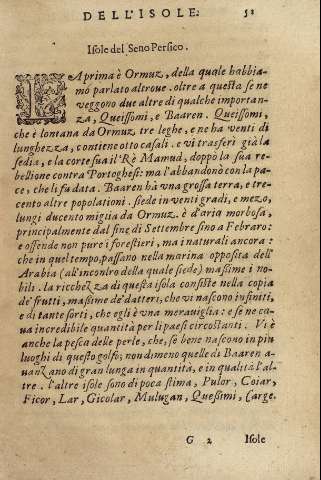 DELL'ISOLE. 52
Isole del Seno Persico.
LA prima è Ormuz, della quale habbia-
mo parlato altroue. oltre a questa se ne
veggono due altre di qualche importan-
za, Queissomi, e Baaren. Queissomi,
che è lontana da Ormuz tre leghe, e ne ha venti di
lunghezza, contiene otto casali. e vi trasferì già la
sedia, e la corte sua il Rè Mamud, doppò la sua re-
bellione contra Portoghesi: ma l'abbandonò con la pa-
ce, che li fu data. Baaren hà vna grossa terra, e tre-
cento altre popolationi. siede in venti gradi, e mezo,
lungi ducento miglia da Ormuz. è d'aria morbosa,
principalmente dal fine di Settembre sino a Febraro:
e offende non pure i forestieri, ma i naturali ancora:
che in quel tempo passano nella marina opposita dell'
Arabia (all'incontro della quale siede) massime i no-
bili. la ricchezza di questa isola consiste nella copia
de' frutti, massime de' datteri, che vi nascono infiniti,
e di tante sorti, che egli è vna merauiglia: e se ne ca-
ua incredibile quantità per li paesi circostanti. Vi è
anche la pesca delle perle, che, se bene nascono in più
luoghi di questo golfo; non dimeno quelle di Baaren a-
uanzano di gran lunga in quantità, e in qualità l'al-
tre. l'altre isole sono di poca stima, Pulor, Coiar,
Ficor, Lar, Gicolar, Mulugan, Quessimi, Carge.
G 2 Isole